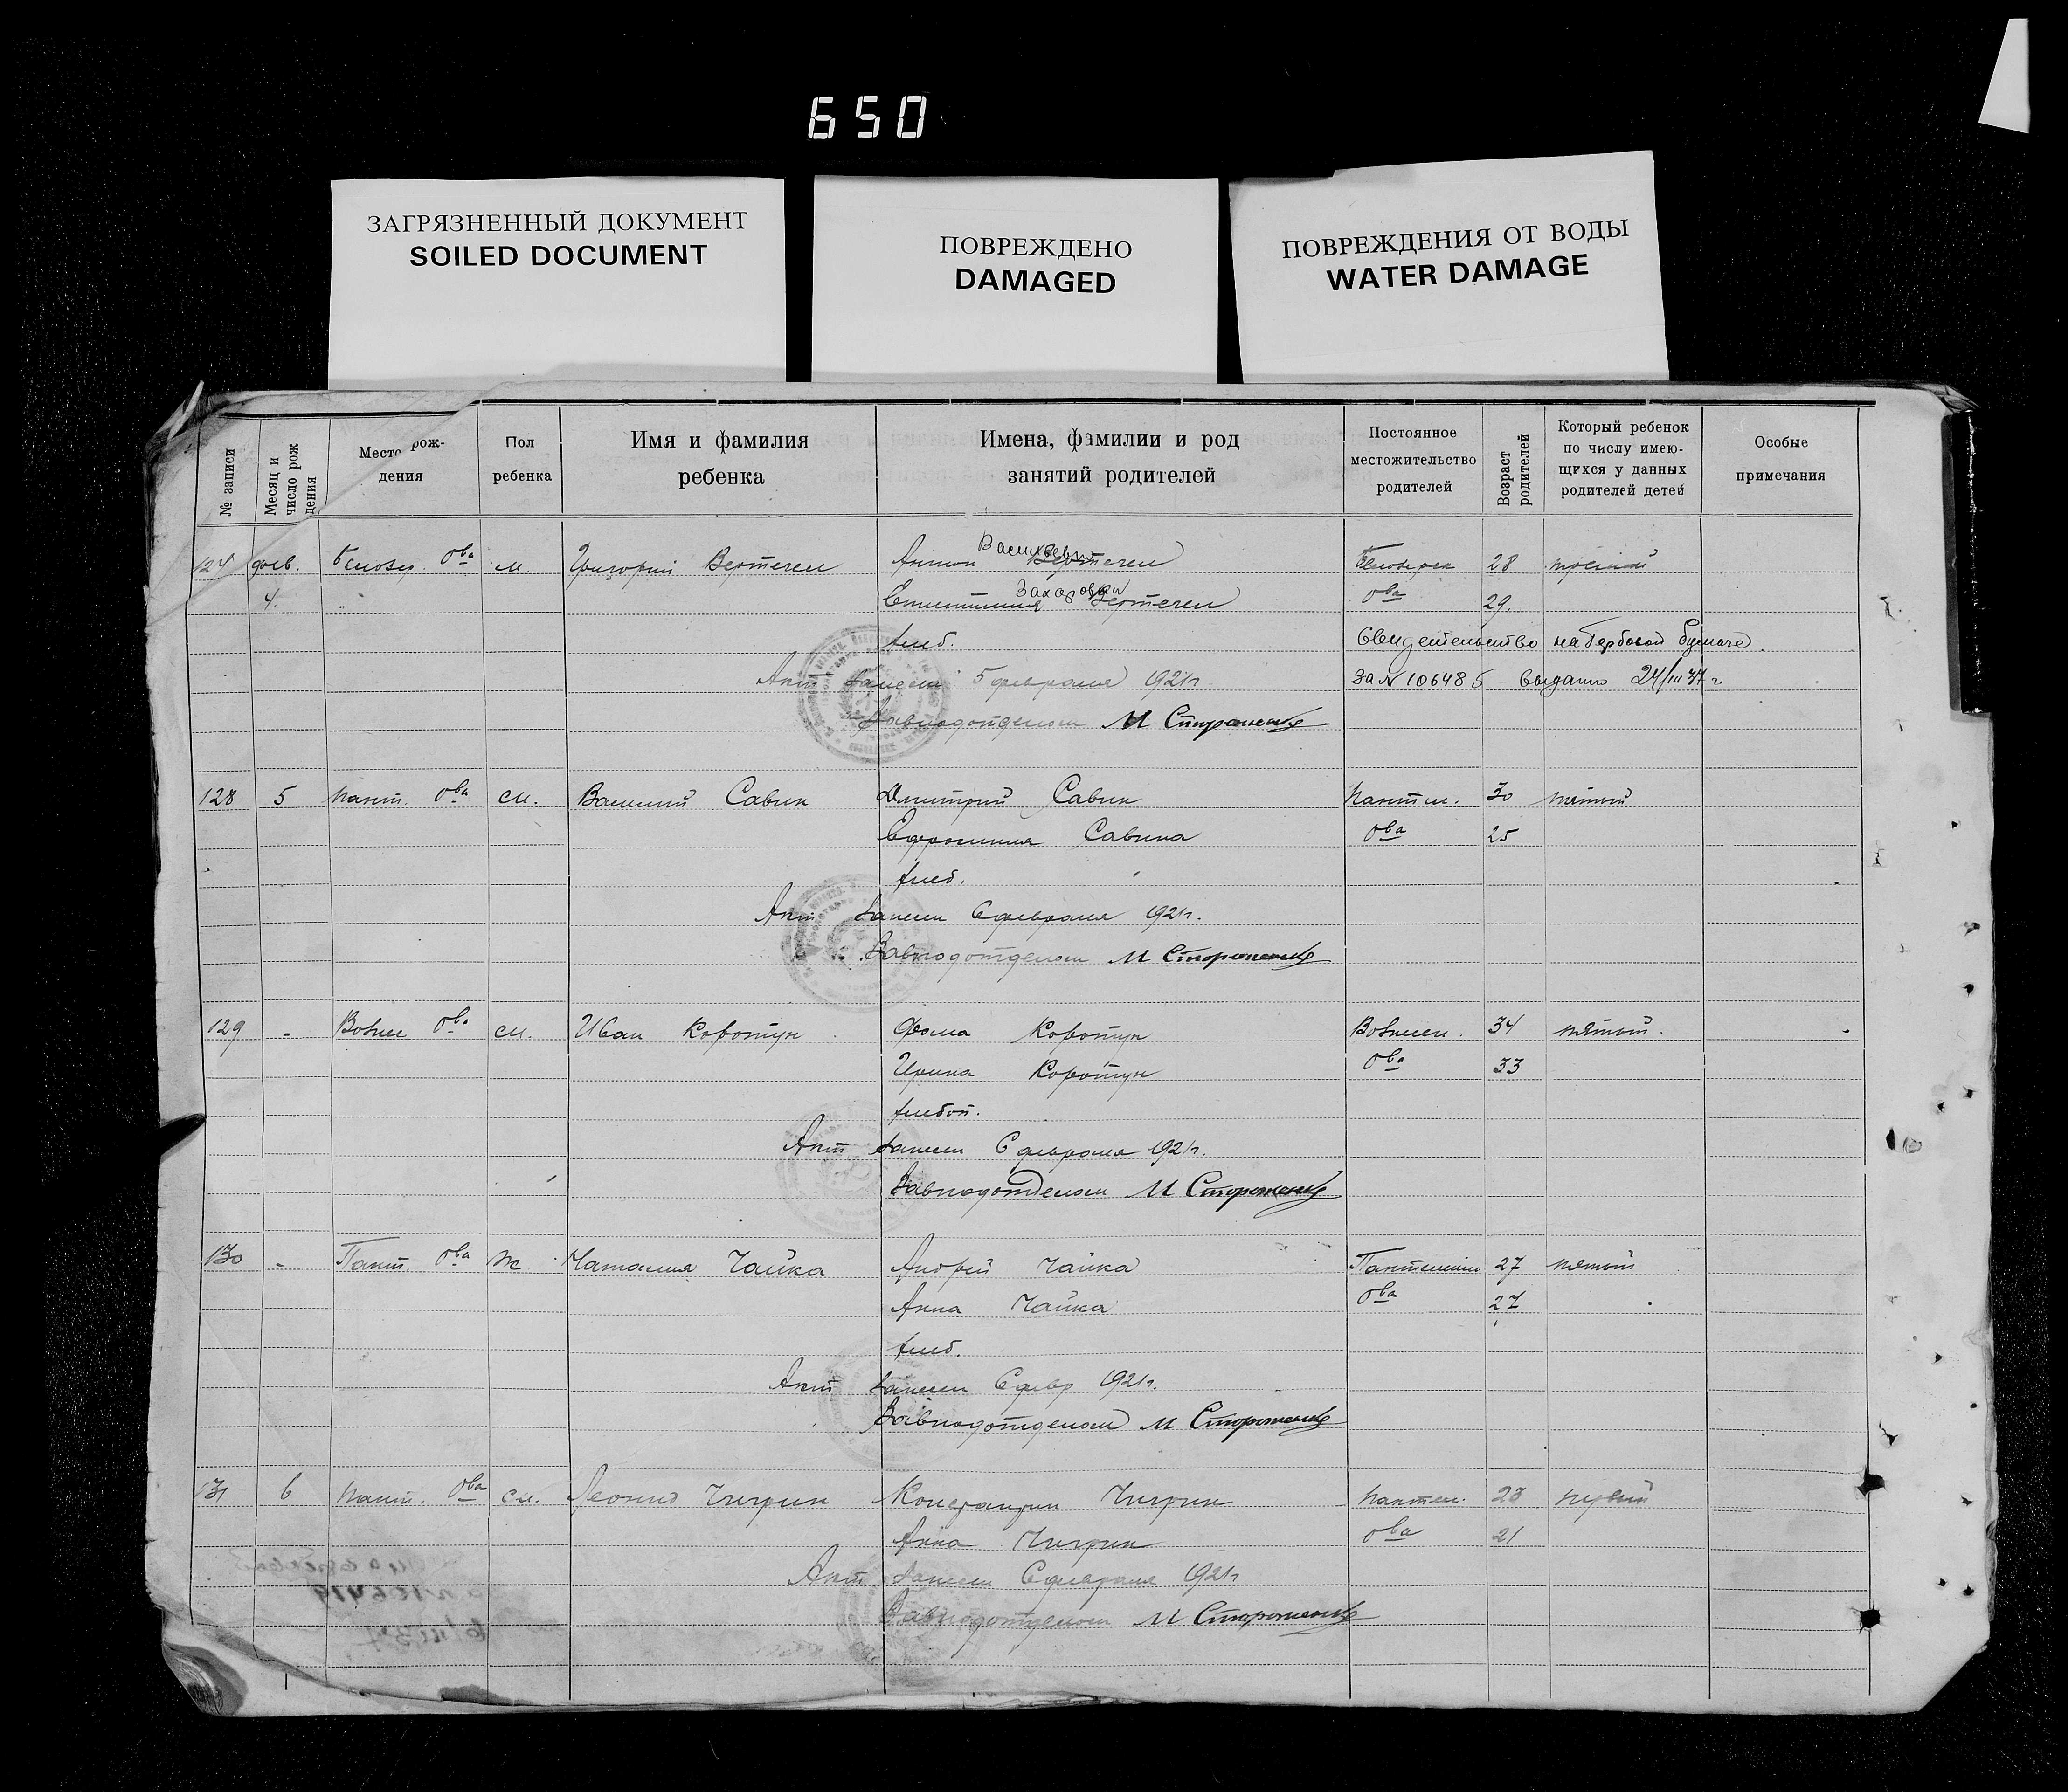 650
ЗАГРЯЗНЕННЫЙ ДОКУМЕНТ
SOILED DOCUMENT
ПОВРЕЖДЕНО
DAMAGED
ПОВРЕЖДЕНИЯ ОТ ВОДЫ
WATER DAMAGE
№ записи
Месяц и число рож дения
Место рож-
дения
Пол
ребенка
Имя и фамилия
ребенка
Имена, фамилии и род
занятий родителей
Постоянное
местожительство
родителей
Возраст
родителей
Который ребенок
по числу имею-
щихся у данных
родителей детей
Особые
примечания
Ова м. Григорий Вертегел
Васильевич
Антон Вертегел 28
4. Захаровна
Вертегел ова 29.
хлеб. Свидетельство на Гербовой бумаге.
Акт 5 февраля 1921 г. За N 106485 выдано 24/III 37 г.
Завподотделом М Стороженко
128 5 Пант. Ова м. Василий Савин Дмитрий Савин Пантел. 30 пятый
Ефросиния Савина Ова 25
хлеб.
Акт записан 6 февраля 1921 г.
Завподотделом М Стороженко
129 - Вознес Ова м. Иван Коротун Фома Коротун Вознесен. 34 пятый.
Ирина Коротун Ова 33
хлебоп.
Акт записан 6 февраля 1921 г.
Завподотделом М Стороженко
130 - Пант. Ова ж Наталия Чайка Андрей Чайка 27 пятый
Анна Чайка Ова 27
хлеб.
Акт записан 6 февр 1921 г.
Завподотделом М Стороженко
131 6 Пант. Ова м. Леонид Чигрин Чигрин Пантел. 23 первый
Анна Чигрин Ова 21
Акт записан 6 февраля 1921 г
Завподотделом М Стороженко